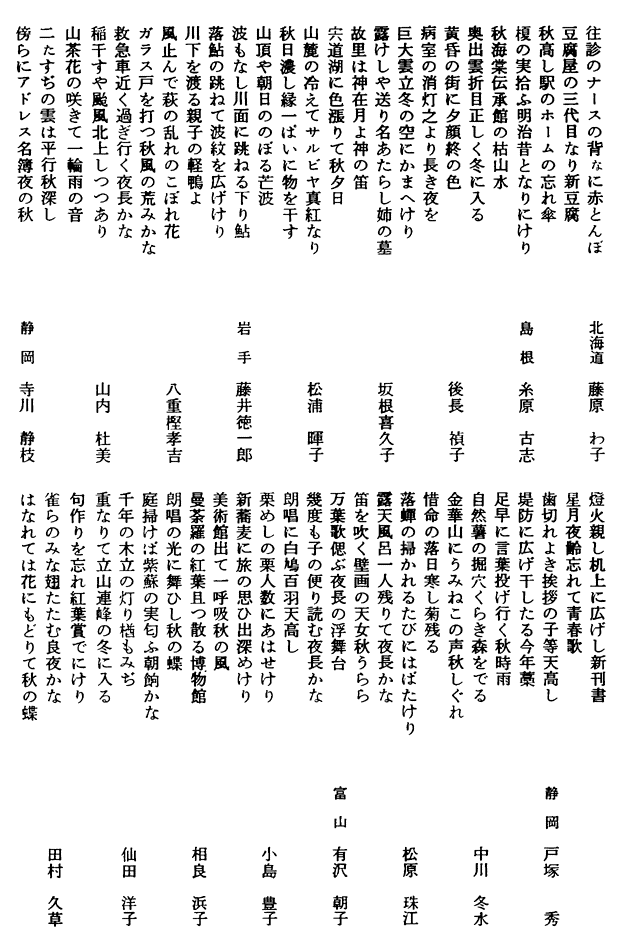 往診のナースの背なに赤とんぼ 北海道 藤原 わ子
豆腐屋の三代目なり新豆腐
秋高し駅のホームの忘れ傘
榎の実拾ふ明治昔となりにけり 島根 糸原 古志
秋海棠伝承館の枯山水
奥出雲折目正しく冬に入る
黄昏の街に夕顔終の色 後長 禎子
病室の消灯之より長き夜を
巨大雲立冬の空にかまへけり
露けしや送り名あたらし姉の墓 坂根喜久子
故里は神在月よ神の笛
宍道湖に色漲りて秋夕日
山麓の冷えてサルビヤ真紅なり 松浦 暉子
秋日濃し縁一ぱいに物を干す
山頂や朝日ののぼる芒波
波もなし川面に跳ねる下り鮎 岩手 藤井徳一郎
落鮎の跳ねて波紋を広げけり
川下を渡る親子の軽鴨よ
風止んで萩の乱れのこぼれ花 八重樫孝吉
ガラス戸を打つ秋風の荒みかな
救急車近く過ぎ行く夜長かな
稲干すや颱風北上しつつあり 山内 杜美
山茶花の咲きて一輪雨の音
二たすぢの雲は平行秋深し
傍らにアドレス名簿夜の秋 静岡 寺川 静枝
燈火親し机上に広げし新刊書
星月夜齢忘れて青春歌
歯切れよき挨拶の子等天高し 静岡 戸塚 秀
堤防に広げ干したる今年藁
足早に言葉投げ行く秋時雨
自然薯の掘穴くらき森をでる 中川 冬水
金華山にうみねこの声秋しぐれ
惜命の落日寒し菊残る
落蟬の掃かれるたびにはばたけり 松原 珠江
露天風呂一人残りて夜長かな
笛を吹く壁画の天女秋うらら
万葉歌偲ぶ夜長の浮舞台 富山 有沢 朝子
幾度も子の便り読む夜長かな
朗唱に白鳩百羽天高し
栗めしの栗人数にあはせけり 小島 豊子
新蕎麦に旅の思ひ出深めけり
美術館出て一呼吸秋の風
曼荼羅の紅葉且つ散る博物館 相良 浜子
朗唱の光に舞ひし秋の蝶
庭掃けば紫蘇の実匂ふ朝餉かな
千年の木立の灯り楢もみぢ 仙田 洋子
重なりて立山連峰の冬に入る
句作りを忘れ紅葉賞でにけり
雀らのみな翅たたむ良夜かな 田村 久草
はなれては花にもどりて秋の蝶